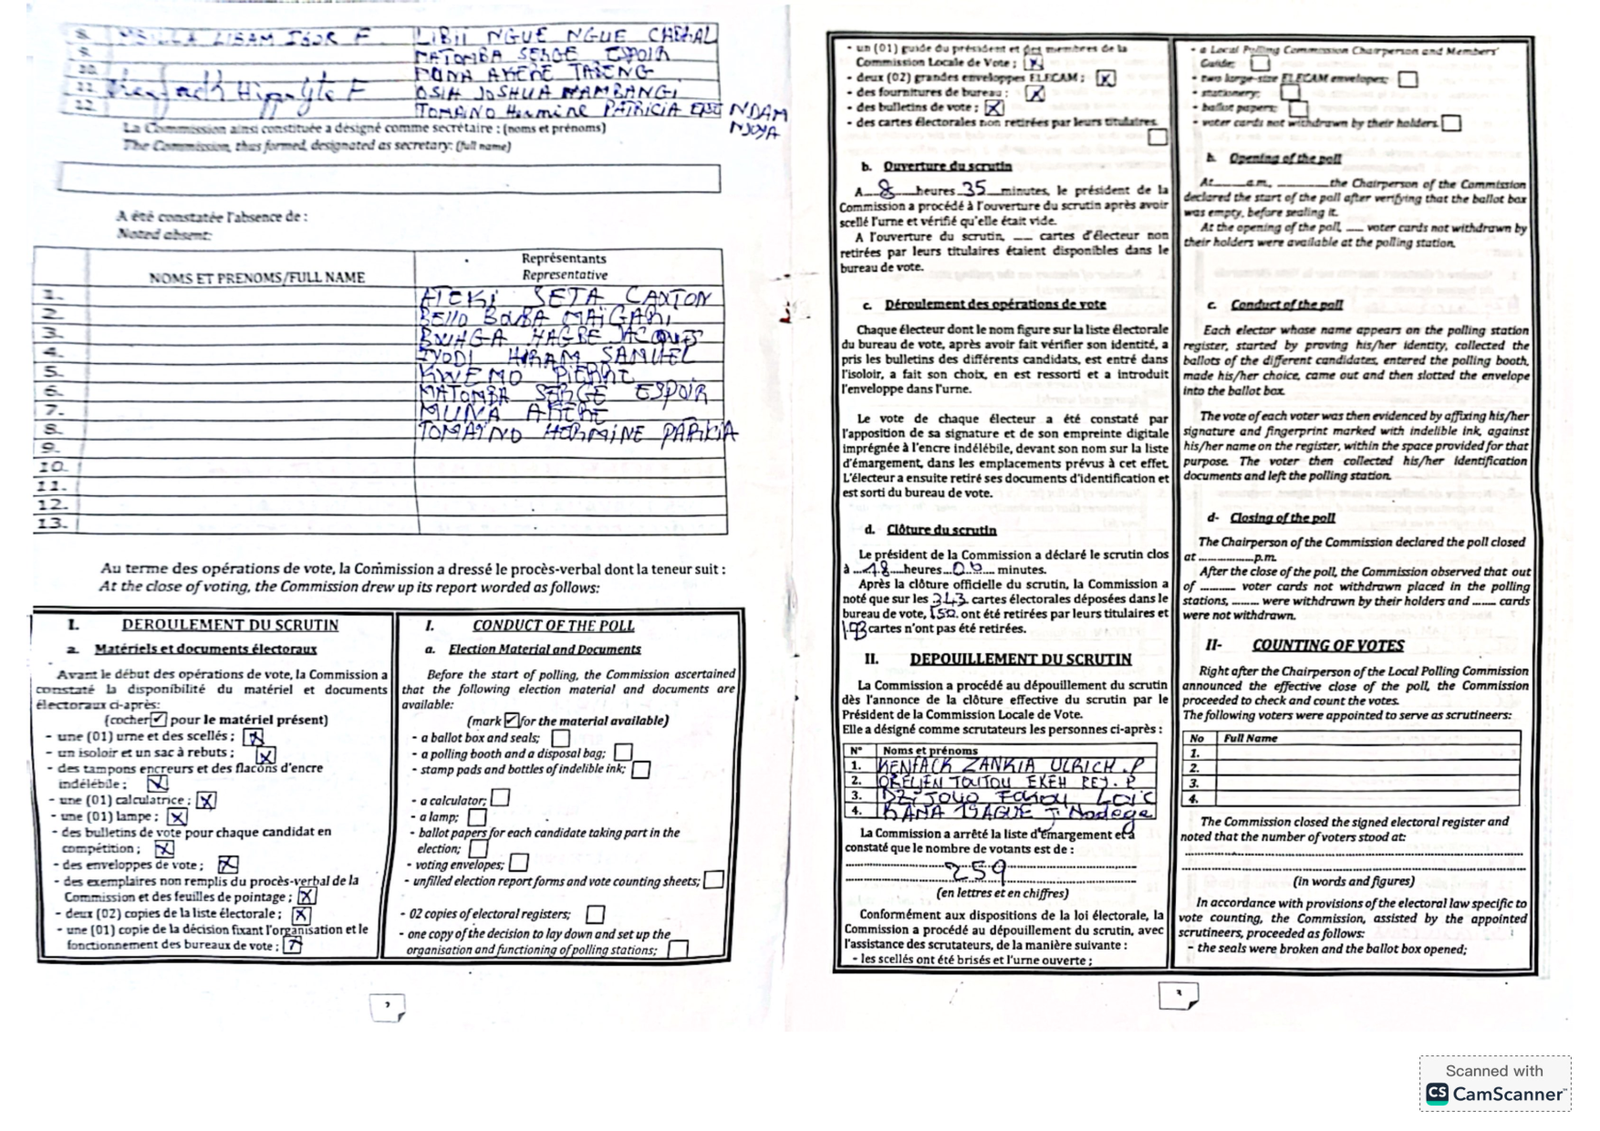 8. LISAM IGOR F. LIBII NGUE NGUE CABRAL
9. MATOMBA SERGE ESPOIR
10. MUNA AKERE TABENG
11. Kenfack Hippolyte F OSIH JOSHUA NAMBANGI
12. TOMAINO Hermine PATRICIA EPSE NDAM
NJOYA
La Commission ainsi constituée a désigné comme secrétaire : (noms et prénoms)
The Commission, thus formed, designated as secretary: (full name)
A été constatée l'absence de :
Noted absent:
NOMS ET PRENOMS/FULL NAME
Représentants
Representative
1. ATEKI SETA CAXTON
2. BELLO BOUBA MAIGARI
3. HAGBE JACQUES
4. IYODI HIRAM SAMUEL
5. KWEMO PIERRE
6. MATOMBA SERGE ESPOIR
7. MUNA AKERE
8. TOMAINO HERMINE PATRICIA
9.
10.
11.
12.
13.
Au terme des opérations de vote, la Commission a dressé le procès-verbal dont la teneur suit :
At the close of voting, the Commission drew up its report worded as follows:
I. DEROULEMENT DU SCRUTIN
a. Matériels et documents électoraux
Avant le début des opérations de vote, la Commission a
constaté la disponibilité du matériel et documents
électoraux ci-après:
(cocher ✓ pour le matériel présent)
- une (01) urne et des scellés ; X
- un isoloir et un sac à rebuts ; X
- des tampons encreurs et des flacons d'encre
indélébile ; X
- une (01) calculatrice ; X
- une (01) lampe ; X
- des bulletins de vote pour chaque candidat en
compétition ; X
- des enveloppes de vote ; X
- des exemplaires non remplis du procès-verbal de la
Commission et des feuilles de pointage ; X
- deux (02) copies de la liste électorale ; X
- une (01) copie de la décision fixant l'organisation et le
fonctionnement des bureaux de vote ; X
I. CONDUCT OF THE POLL
a. Election Material and Documents
Before the start of polling, the Commission ascertained
that the following election material and documents are
available:
(mark ✓ for the material available)
- a ballot box and seals;
- a polling booth and a disposal bag;
- stamp pads and bottles of indelible ink;
- a calculator;
- a lamp;
- ballot papers for each candidate taking part in the
election;
- voting envelopes;
- unfilled election report forms and vote counting sheets;
- 02 copies of electoral registers;
- one copy of the decision to lay down and set up the
organisation and functioning of polling stations;
- un (01) guide du président et des membres de la
Commission Locale de Vote ; X
- deux (02) grandes enveloppes ELECAM ; X
- des fournitures de bureau ; X
- des bulletins de vote ; X
- des cartes électorales non retirées par leurs titulaires.
b. Ouverture du scrutin
A 8 heures 35 minutes, le président de la
Commission a procédé à l'ouverture du scrutin après avoir
scellé l'urne et vérifié qu'elle était vide.
A l'ouverture du scrutin, ___ cartes d'électeur non
retirées par leurs titulaires étaient disponibles dans le
bureau de vote.
c. Déroulement des opérations de vote
Chaque électeur dont le nom figure sur la liste électorale
du bureau de vote, après avoir fait vérifier son identité, a
pris les bulletins des différents candidats, est entré dans
l'isoloir, a fait son choix, en est ressorti et a introduit
l'enveloppe dans l'urne.
Le vote de chaque électeur a été constaté par
l'apposition de sa signature et de son empreinte digitale
imprégnée à l'encre indélébile, devant son nom sur la liste
d'émargement, dans les emplacements prévus à cet effet.
L'électeur a ensuite retiré ses documents d'identification et
est sorti du bureau de vote.
d. Clôture du scrutin
Le président de la Commission a déclaré le scrutin clos
à 18 heures 06 minutes.
Après la clôture officielle du scrutin, la Commission a
noté que sur les 343 cartes électorales déposées dans le
bureau de vote, 150 ont été retirées par leurs titulaires et
193 cartes n'ont pas été retirées.
II. DEPOUILLEMENT DU SCRUTIN
La Commission a procédé au dépouillement du scrutin
dès l'annonce de la clôture effective du scrutin par le
Président de la Commission Locale de Vote.
Elle a désigné comme scrutateurs les personnes ci-après :
N° Noms et prénoms
1. KENFACK ZANKIA ULRICH .P
2. TOUTOU EKEH
3.
4. KANA
La Commission a arrêté la liste d'émargement et a
constaté que le nombre de votants est de :
259
(en lettres et en chiffres)
Conformément aux dispositions de la loi électorale, la
Commission a procédé au dépouillement du scrutin, avec
l'assistance des scrutateurs, de la manière suivante :
- les scellés ont été brisés et l'urne ouverte ;
- a Local Polling Commission Chairperson and Members'
Guide;
- two large-size ELECAM envelopes;
- stationery;
- ballot papers;
- voter cards not withdrawn by their holders.
b. Opening of the poll
At ___ a.m., ___ the Chairperson of the Commission
declared the start of the poll after verifying that the ballot box
was empty, before sealing it.
At the opening of the poll, ___ voter cards not withdrawn by
their holders were available at the polling station.
c. Conduct of the poll
Each elector whose name appears on the polling station
register, started by proving his/her identity, collected the
ballots of the different candidates, entered the polling booth,
made his/her choice, came out and then slotted the envelope
into the ballot box.
The vote of each voter was then evidenced by affixing his/her
signature and fingerprint marked with indelible ink, against
his/her name on the register, within the space provided for that
purpose. The voter then collected his/her identification
documents and left the polling station.
d- Closing of the poll
The Chairperson of the Commission declared the poll closed
at ............ p.m.
After the close of the poll, the Commission observed that out
of ......... voter cards not withdrawn placed in the polling
stations, ....... were withdrawn by their holders and ...... cards
were not withdrawn.
II- COUNTING OF VOTES
Right after the Chairperson of the Local Polling Commission
announced the effective close of the poll, the Commission
proceeded to check and count the votes.
The following voters were appointed to serve as scrutineers:
No Full Name
1.
2.
3.
4.
The Commission closed the signed electoral register and
noted that the number of voters stood at:
(in words and figures)
In accordance with provisions of the electoral law specific to
vote counting, the Commission, assisted by the appointed
scrutineers, proceeded as follows:
- the seals were broken and the ballot box opened;
Scanned with
CS CamScanner